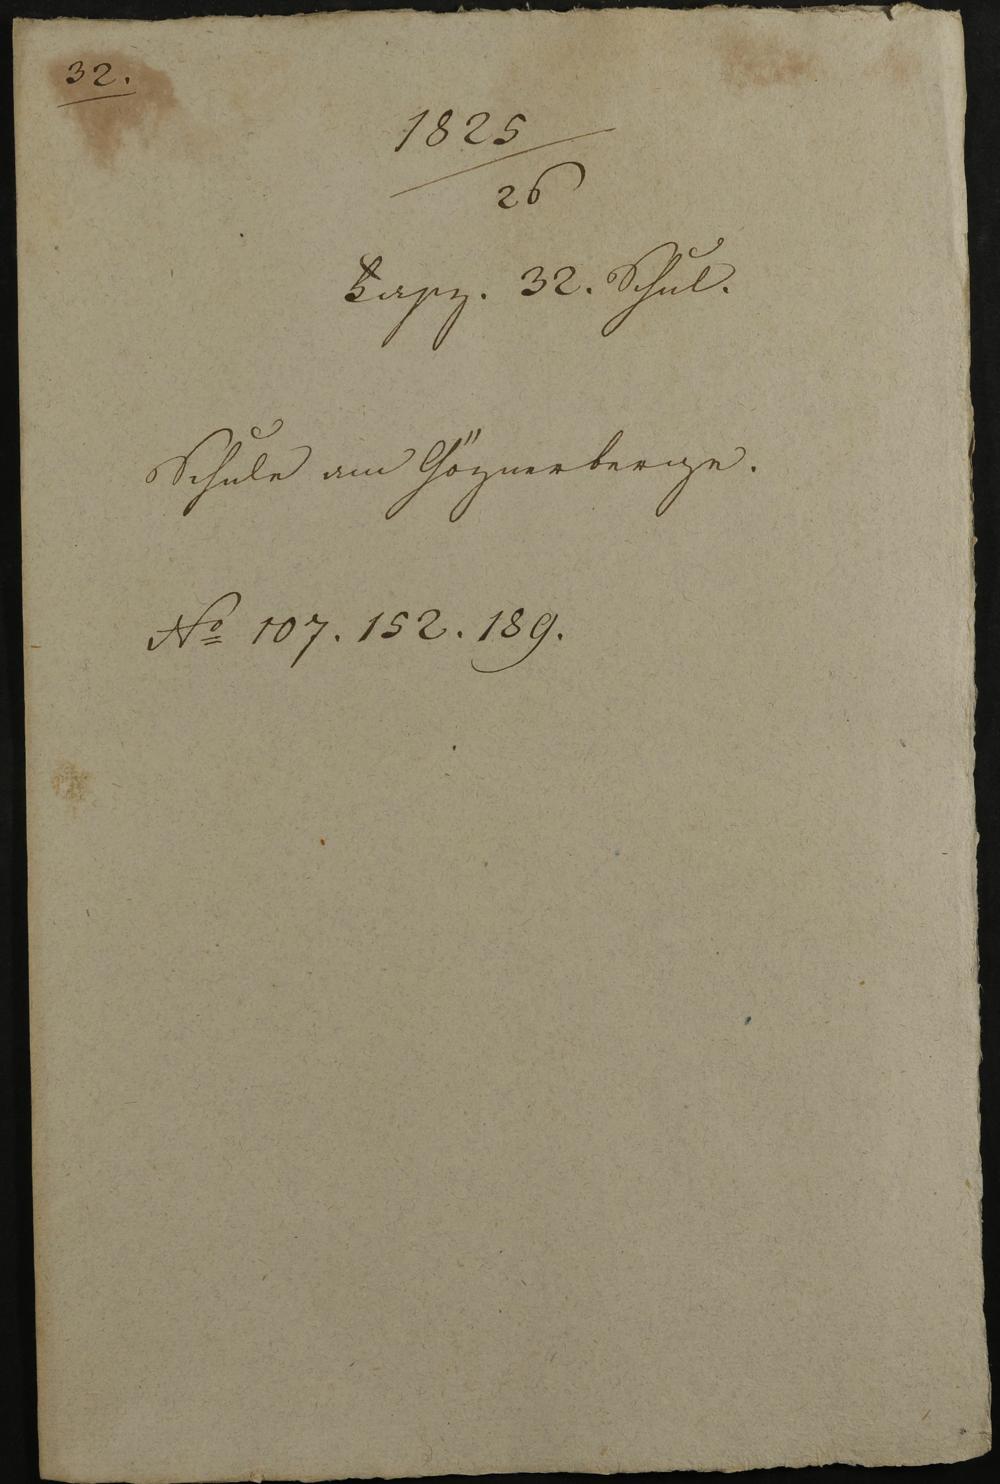 32.
1825
26
Fasz. 32. Schul.
Schule am Götznerberge.
No 107. 152. 189.